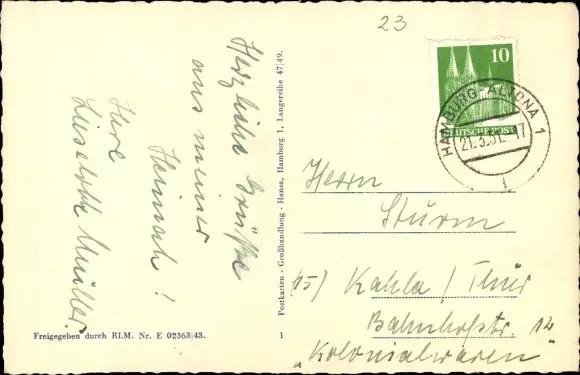 23
Herzliche Grüße
aus meiner
Heimat!
Ihre
Lieselotte Müller.
Freigegeben durch RLM. Nr. E 02363/43.
Postkarten - Großhandlung - Hansa, Hamburg 1, Langereihe 47/49.
1
10
DEUTSCHE POST
HAMBURG-ALTONA 1
21.3.51. 17
Herrn
Sturm
15) Kahla / Thür
Bahnhofstr. 12
"Kolonialwaren"